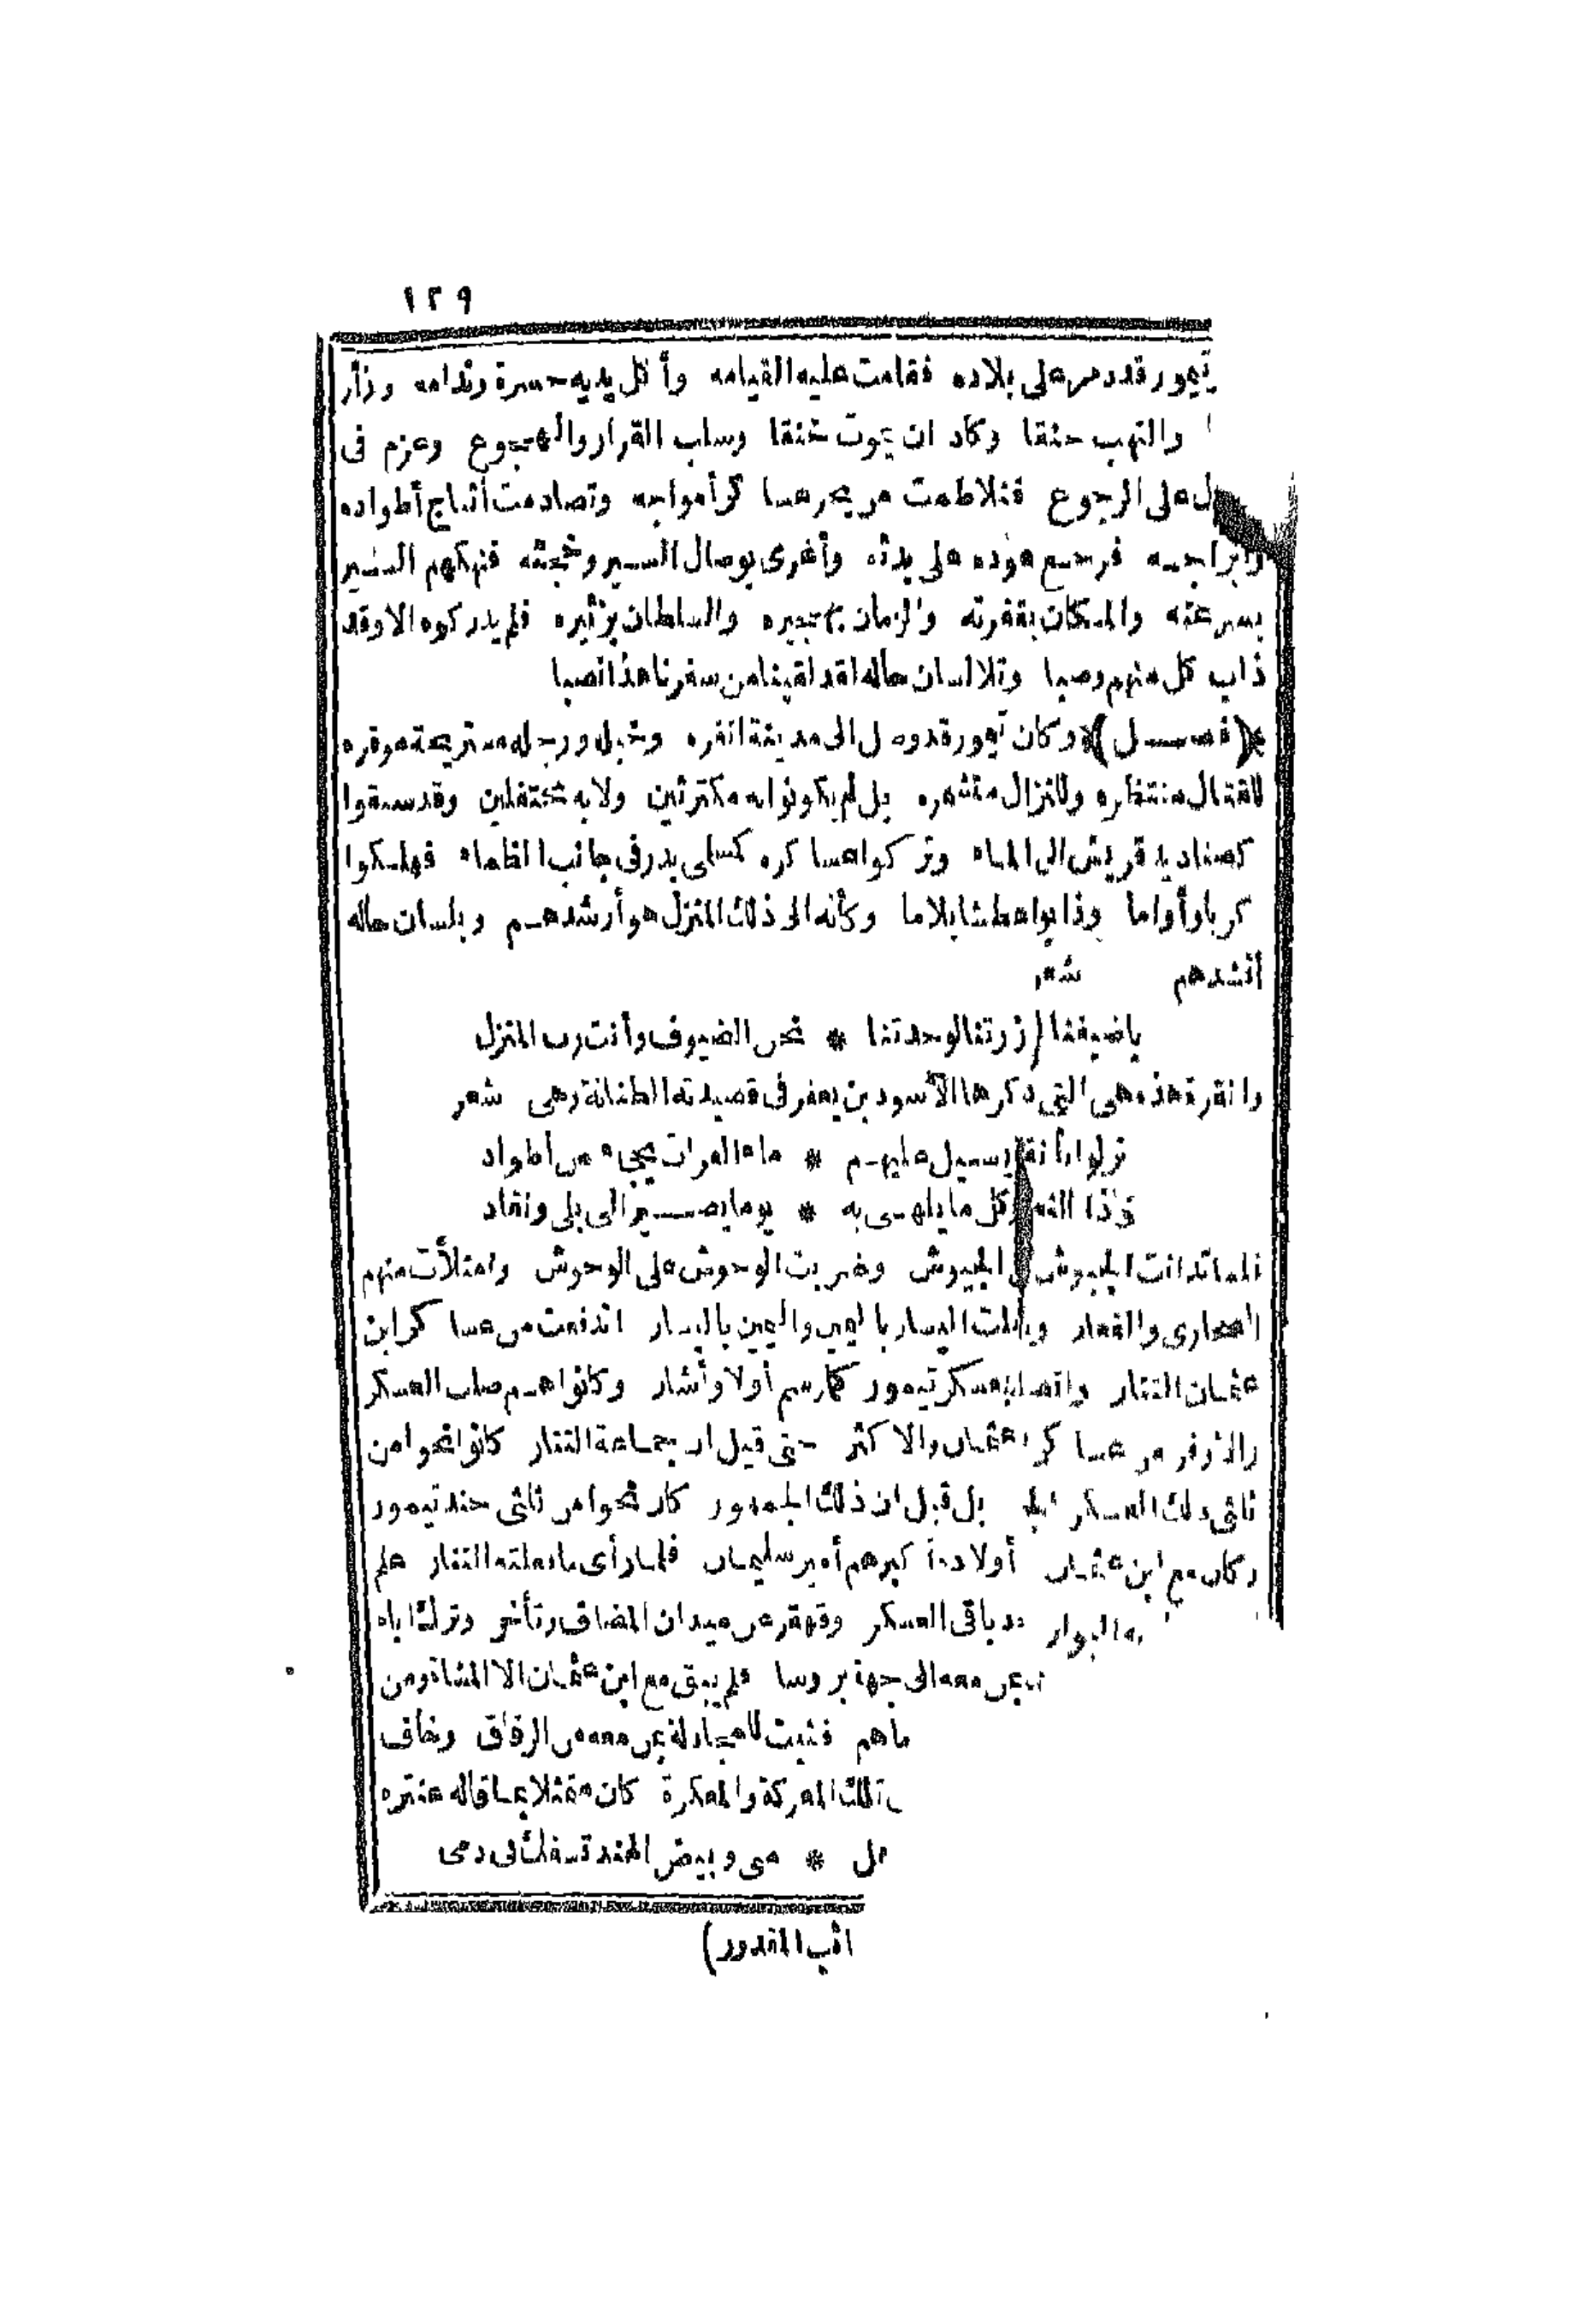 ١٢٩
تيمور قد دمر على بلاده فقامت عليه القيامه وأكل يديه حسرة وندامه وزأر
والتهب حنقا وكاد ان يموت خنقا وسلب القرار والهجوع وعزم فى
ل على الرجوع فتلاطمت من بحر عساكر أمواجه وتصادمت أثباج أطواده
وابراجه فرجع عوده على بدئه وأغرى بوصال السير وخجئه فنهكهم السير
بسرعته والمكان بقفرته والزمان بهجيره والسلطان بزئيره فلم يدركوه الا وقد
ذاب كل منهم وصبا وتلا لسان حاله لقد لقينا من سفرنا هذا نصبا
﴿فصــل﴾ وكان تيمور قد وصل الى مدينة انقره وخيله ورجله مستريحة موقره
للقتال منتظره وللنزال مشمره بل لم يكونوا به مكترثين ولا به محتفلين وقد سبقوا
كصناديد قريش الى الماء وتركوا عساكره كمسلمى بدر فى جانب الظماء فهلكوا
كربا وأواما وذابوا عطشا بلا ما وكأنه الى ذلك المنزل هو أرشدهم وبلسان حاله
أنشدهم شعر
يا ضيفنا لو زرتنا لوجدتنا * نحن الضيوف وأنت رب المنزل
وانقرة هذه هى التى ذكرها الأسود بن يعفر فى قصيدته الطنانة وهى شعر
نزلوا بأنقرة يسيل عليهم * ماء الفرات يجىء من أطواد
فاذا النعيم وكل ما يلهى به * يوما يصير الى بلى ونفاد
فلما تدانت الجيوش من الجيوش وضربت الوحوش على الوحوش وامتلأت منهم
الصحارى والقفار وقابلت اليسار باليمين واليمين باليسار اندفعت من عساكر ابن
عثمان التتار واتصلت بعسكر تيمور كما رسم أولا وأشار وكانوا هم صلب العسكر
والأوفر من عساكر ابن عثمان والاكثر حتى قيل ان جماعة التتار كانوا نحوا من
ثلثى ذلك العسكر بل قيل ان ذلك الجمهور كان نحوا من ثلثى جند تيمور
وكان مع ابن عثمان أولاده أكبرهم أمير سليمان فلما رأى ما فعلته التتار علم
البوار باقى العسكر وقهقر عن ميدان المصاف وتأخر وترك أباه
بمن معه الى جهة بروسا فلم يبق مع ابن عثمان الا المشاة ومن
ماهم فثبت للمجادلة بمن معه من الرفاق وخاف
تلك المعركة والمكرة كان متمثلا بما قاله عنتره
ل * منى وبيض الهند تسفك فى دمى
ائب المقدور)